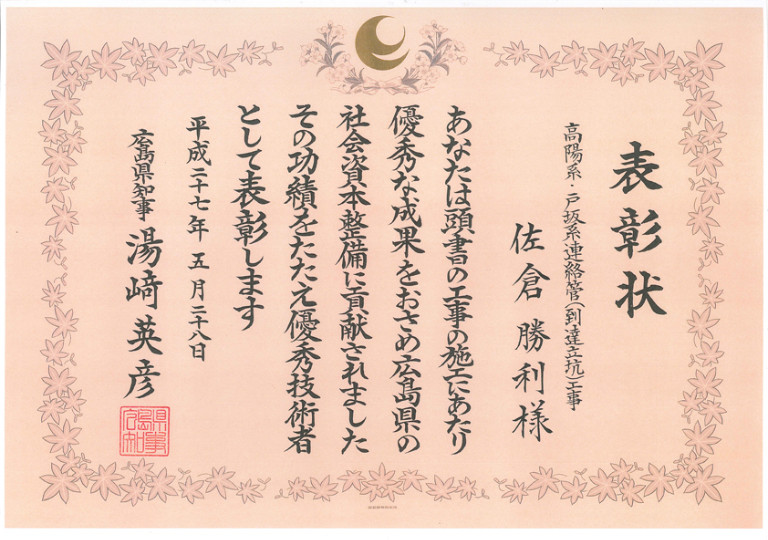 表彰状
高陽系・戸坂系連絡管(到達立坑)工事
佐倉勝利様
あなたは頭書の工事の施工にあたり
優秀な成果をおさめ広島県の
社会資本整備に貢献されました
その功績をたたえ優秀技術者
として表彰します
平成二十七年五月二十八日
広島県知事 湯﨑英彦